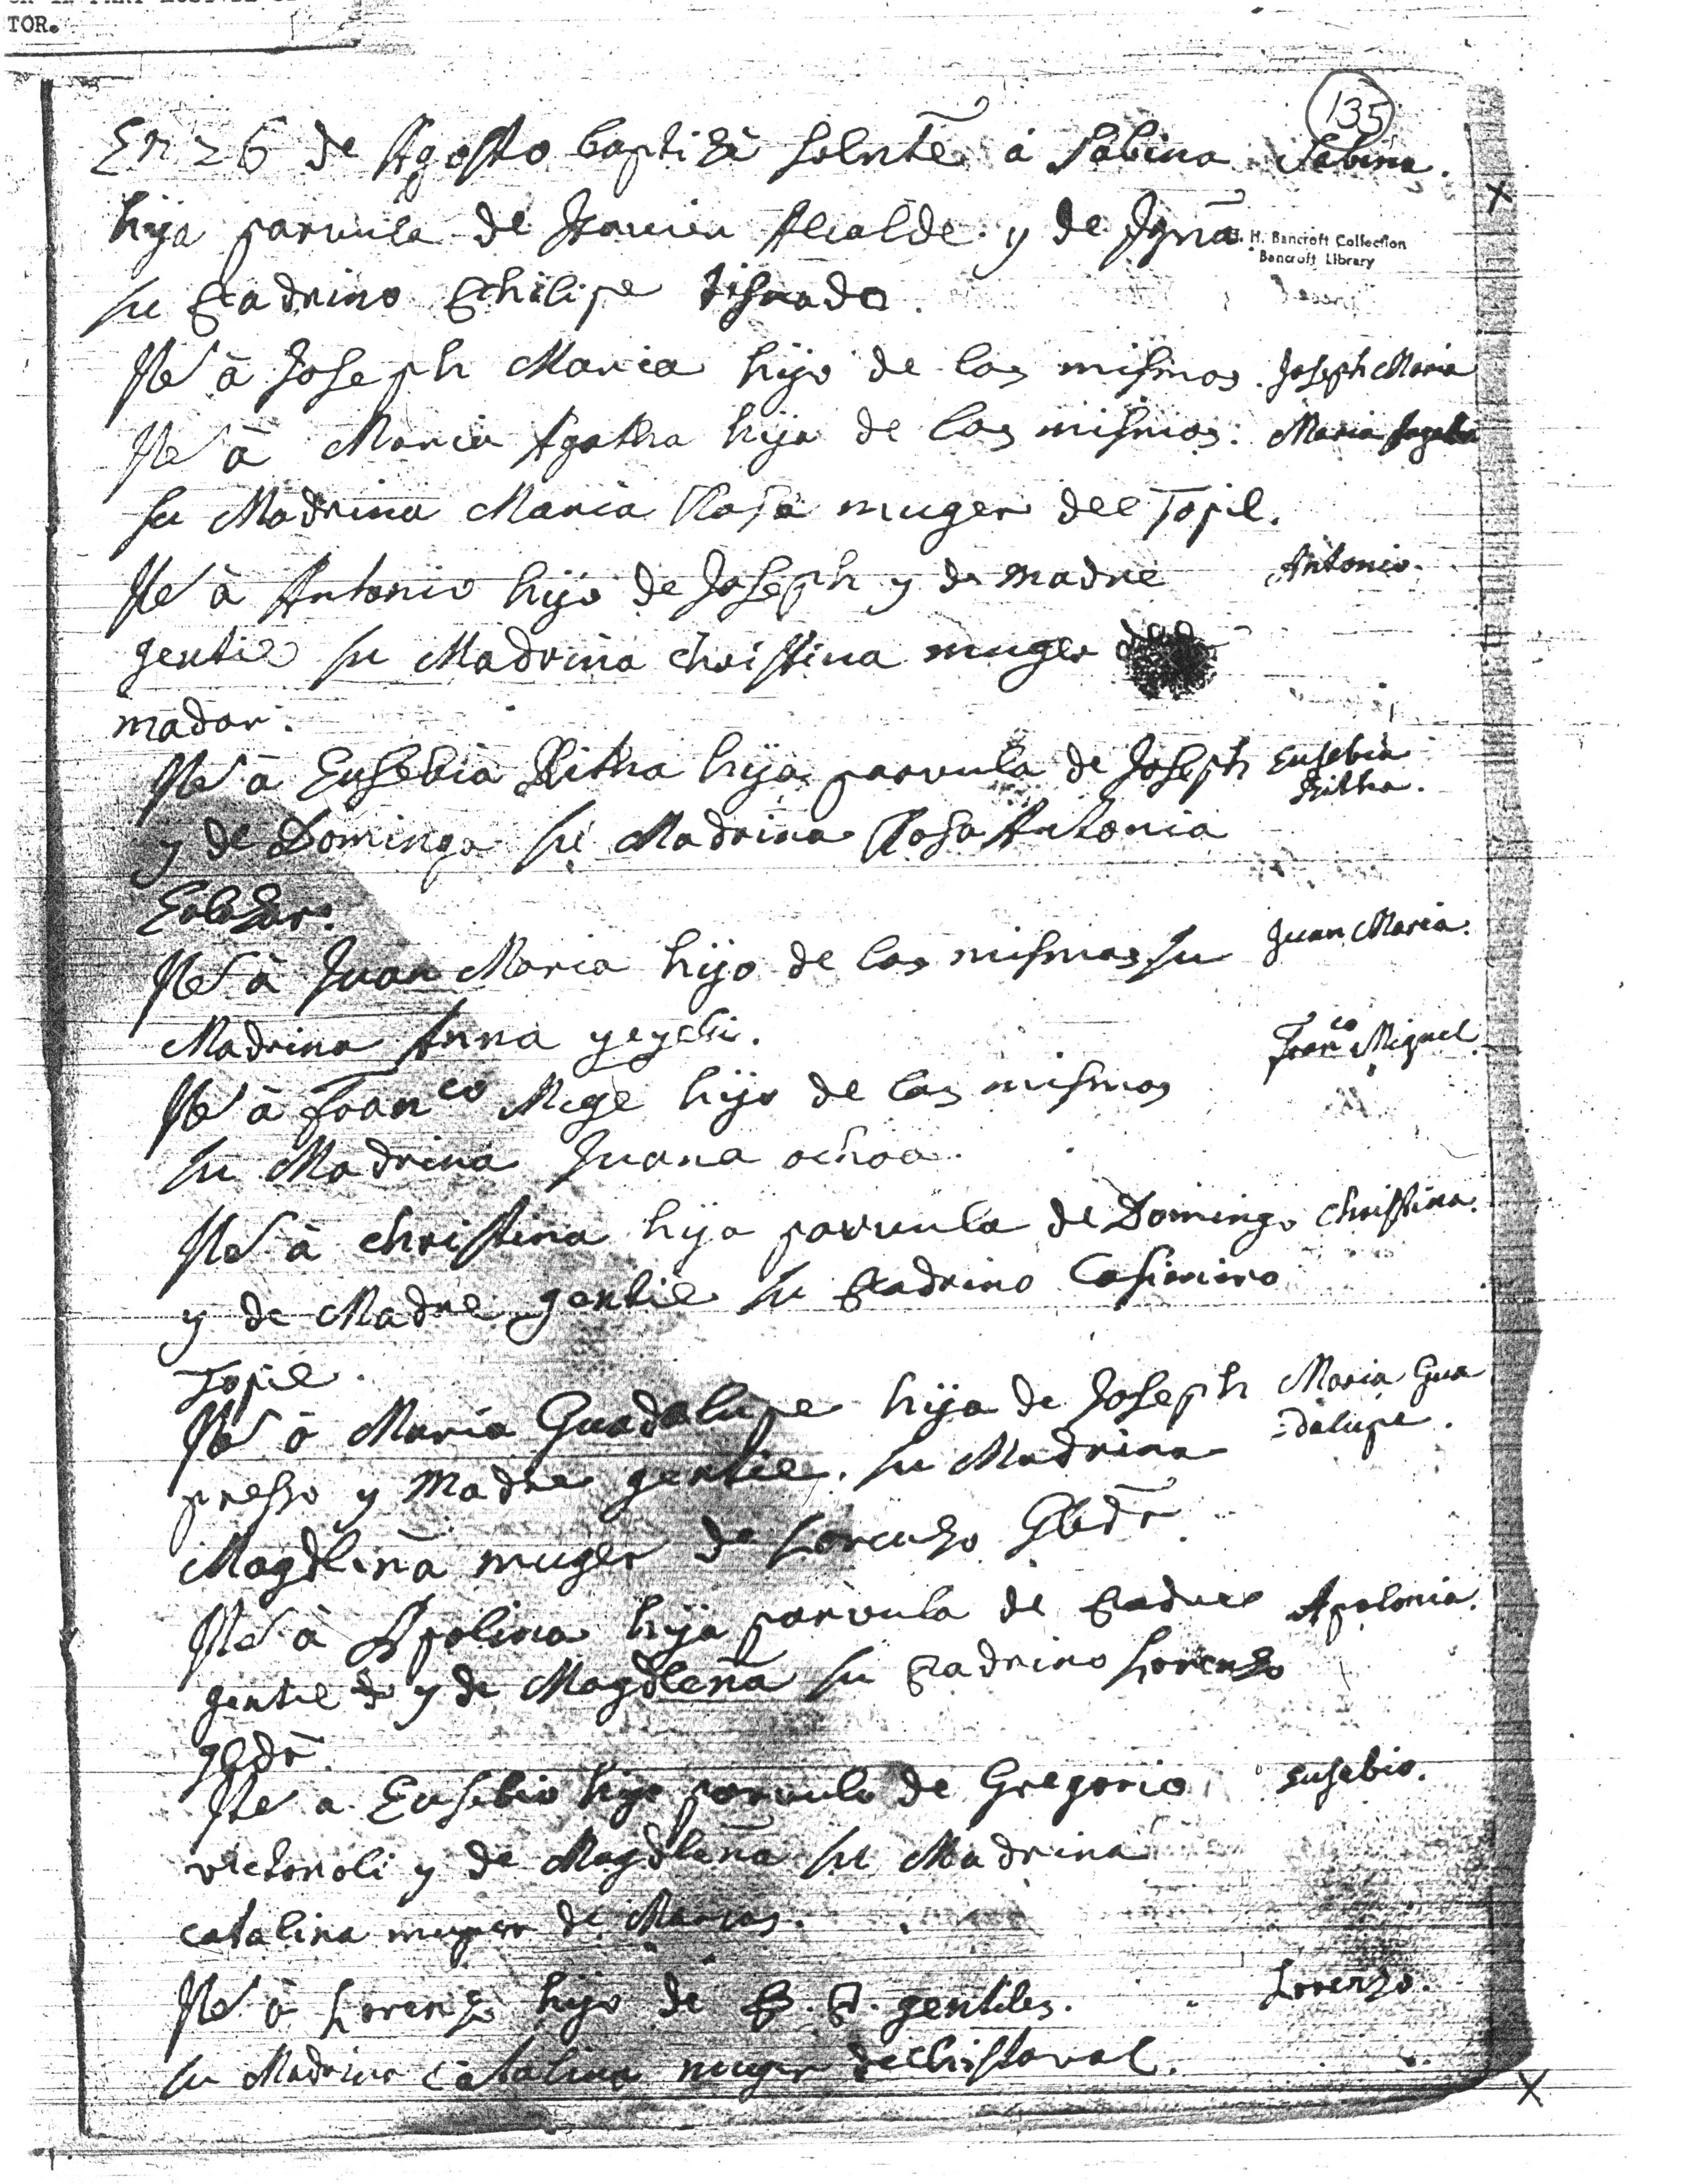 TOR.
135
En 26 de Agosto baptizè solnte à Sabina Sabina.
hija parvula de Xavier Alcalde y de Ignà
H. H. Bancroft Collection
Bancroft Library
su Padrino Phílipe tisnado.
Ytè à Joseph Maria hijo de los mismos. Joseph Maria
Ytè à Maria Agatha hija de los mismos: Maria Agatha
su Madrina Maria Rosa muger del Topil.
Ytè à Antonio hijo de Joseph y de madre Antonio.
gentil su Madrina Christina muger
mador.
Ytè à Eusebia Ritha hija parvula de Joseph Eusebia
Ritha.
y de Dominga su Madrina Rosa Antonia
Ytè à Juan Maria hijo de los mismos su Juan Maria.
Madrina Anna
Ytè à Franco Mige hijo de los mismos Franco Miguel.
su Madrina Juana ochoa.
Ytè à Christina hija parvula de Domingo Christina.
y de Madre gentil su Padrino Casimiro
Topil.
Ytè à Maria Guadalupe hija de Joseph Maria Gua
=dalupe.
presso y Madre gentil. su Madrina
Magdlina muger de Lorenzo Gbdr
Ytè à Apolina hija parvula de Padre Apolonia.
gentil de y de Magdlena su Padrino Lorenzo
gbdr.
Ytè a Eusebio hijo parvulo de Gregorio Eusebio.
victonoli y de Magdlena su Madrina
catalina muger de Marcos.
Ytè à Lorenzo hijo de P. P. gentiles. Lorenzo.
su Madrina catalina muger de Christoval.